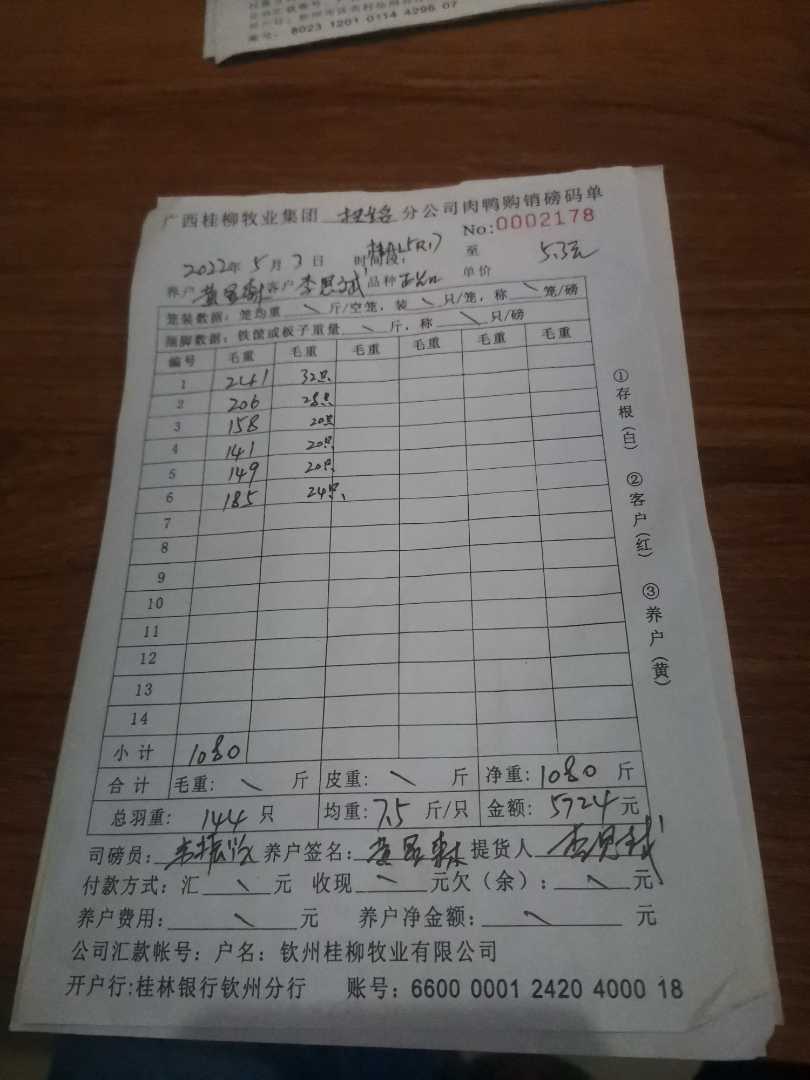 8023 1201 0114 4296 07
广西桂柳牧业集团 分公司肉鸭购销磅码单
No:0002178
2022年5月3日 时间段: 至
养户 客户 李思斌 品种 单价 5.3元
笼装数据: 笼均重 \ 斤/空笼, 装 \ 只/笼, 称 \ 笼/磅
捆脚数据: 铁筐或板子重量 \ 斤, 称 \ 只/磅
编号 毛重 毛重 毛重 毛重 毛重 毛重
1 241 32只
2 206 28只
3 158 20只
4 141 20只
5 149 20只
6 185 24只
7
8
9
10
11
12
13
14
小计 1080
合计 毛重: \ 斤 皮重: \ 斤 净重: 1080 斤
总羽重: 144 只 均重: 7.5 斤/只 金额: 5724 元
司磅员: 养户签名: 提货人 李思斌
付款方式: 汇 \ 元 收现 \ 元欠(余): \ 元
养户费用: \ 元 养户净金额: \ 元
公司汇款帐号: 户名: 钦州桂柳牧业有限公司
开户行:桂林银行钦州分行 账号: 6600 0001 2420 4000 18
①存根(白) ②客户(红) ③养户(黄)